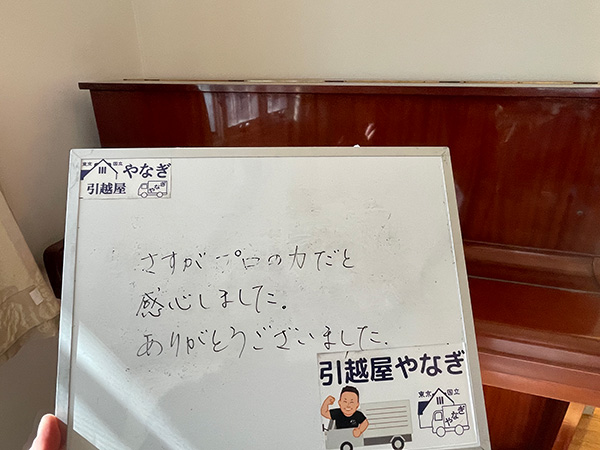 東京 国立
やなぎ
引越屋
やなぎ
さすがプロの力だと
感心しました。
ありがとうございました.
引越屋やなぎ
東京 国立
やなぎ